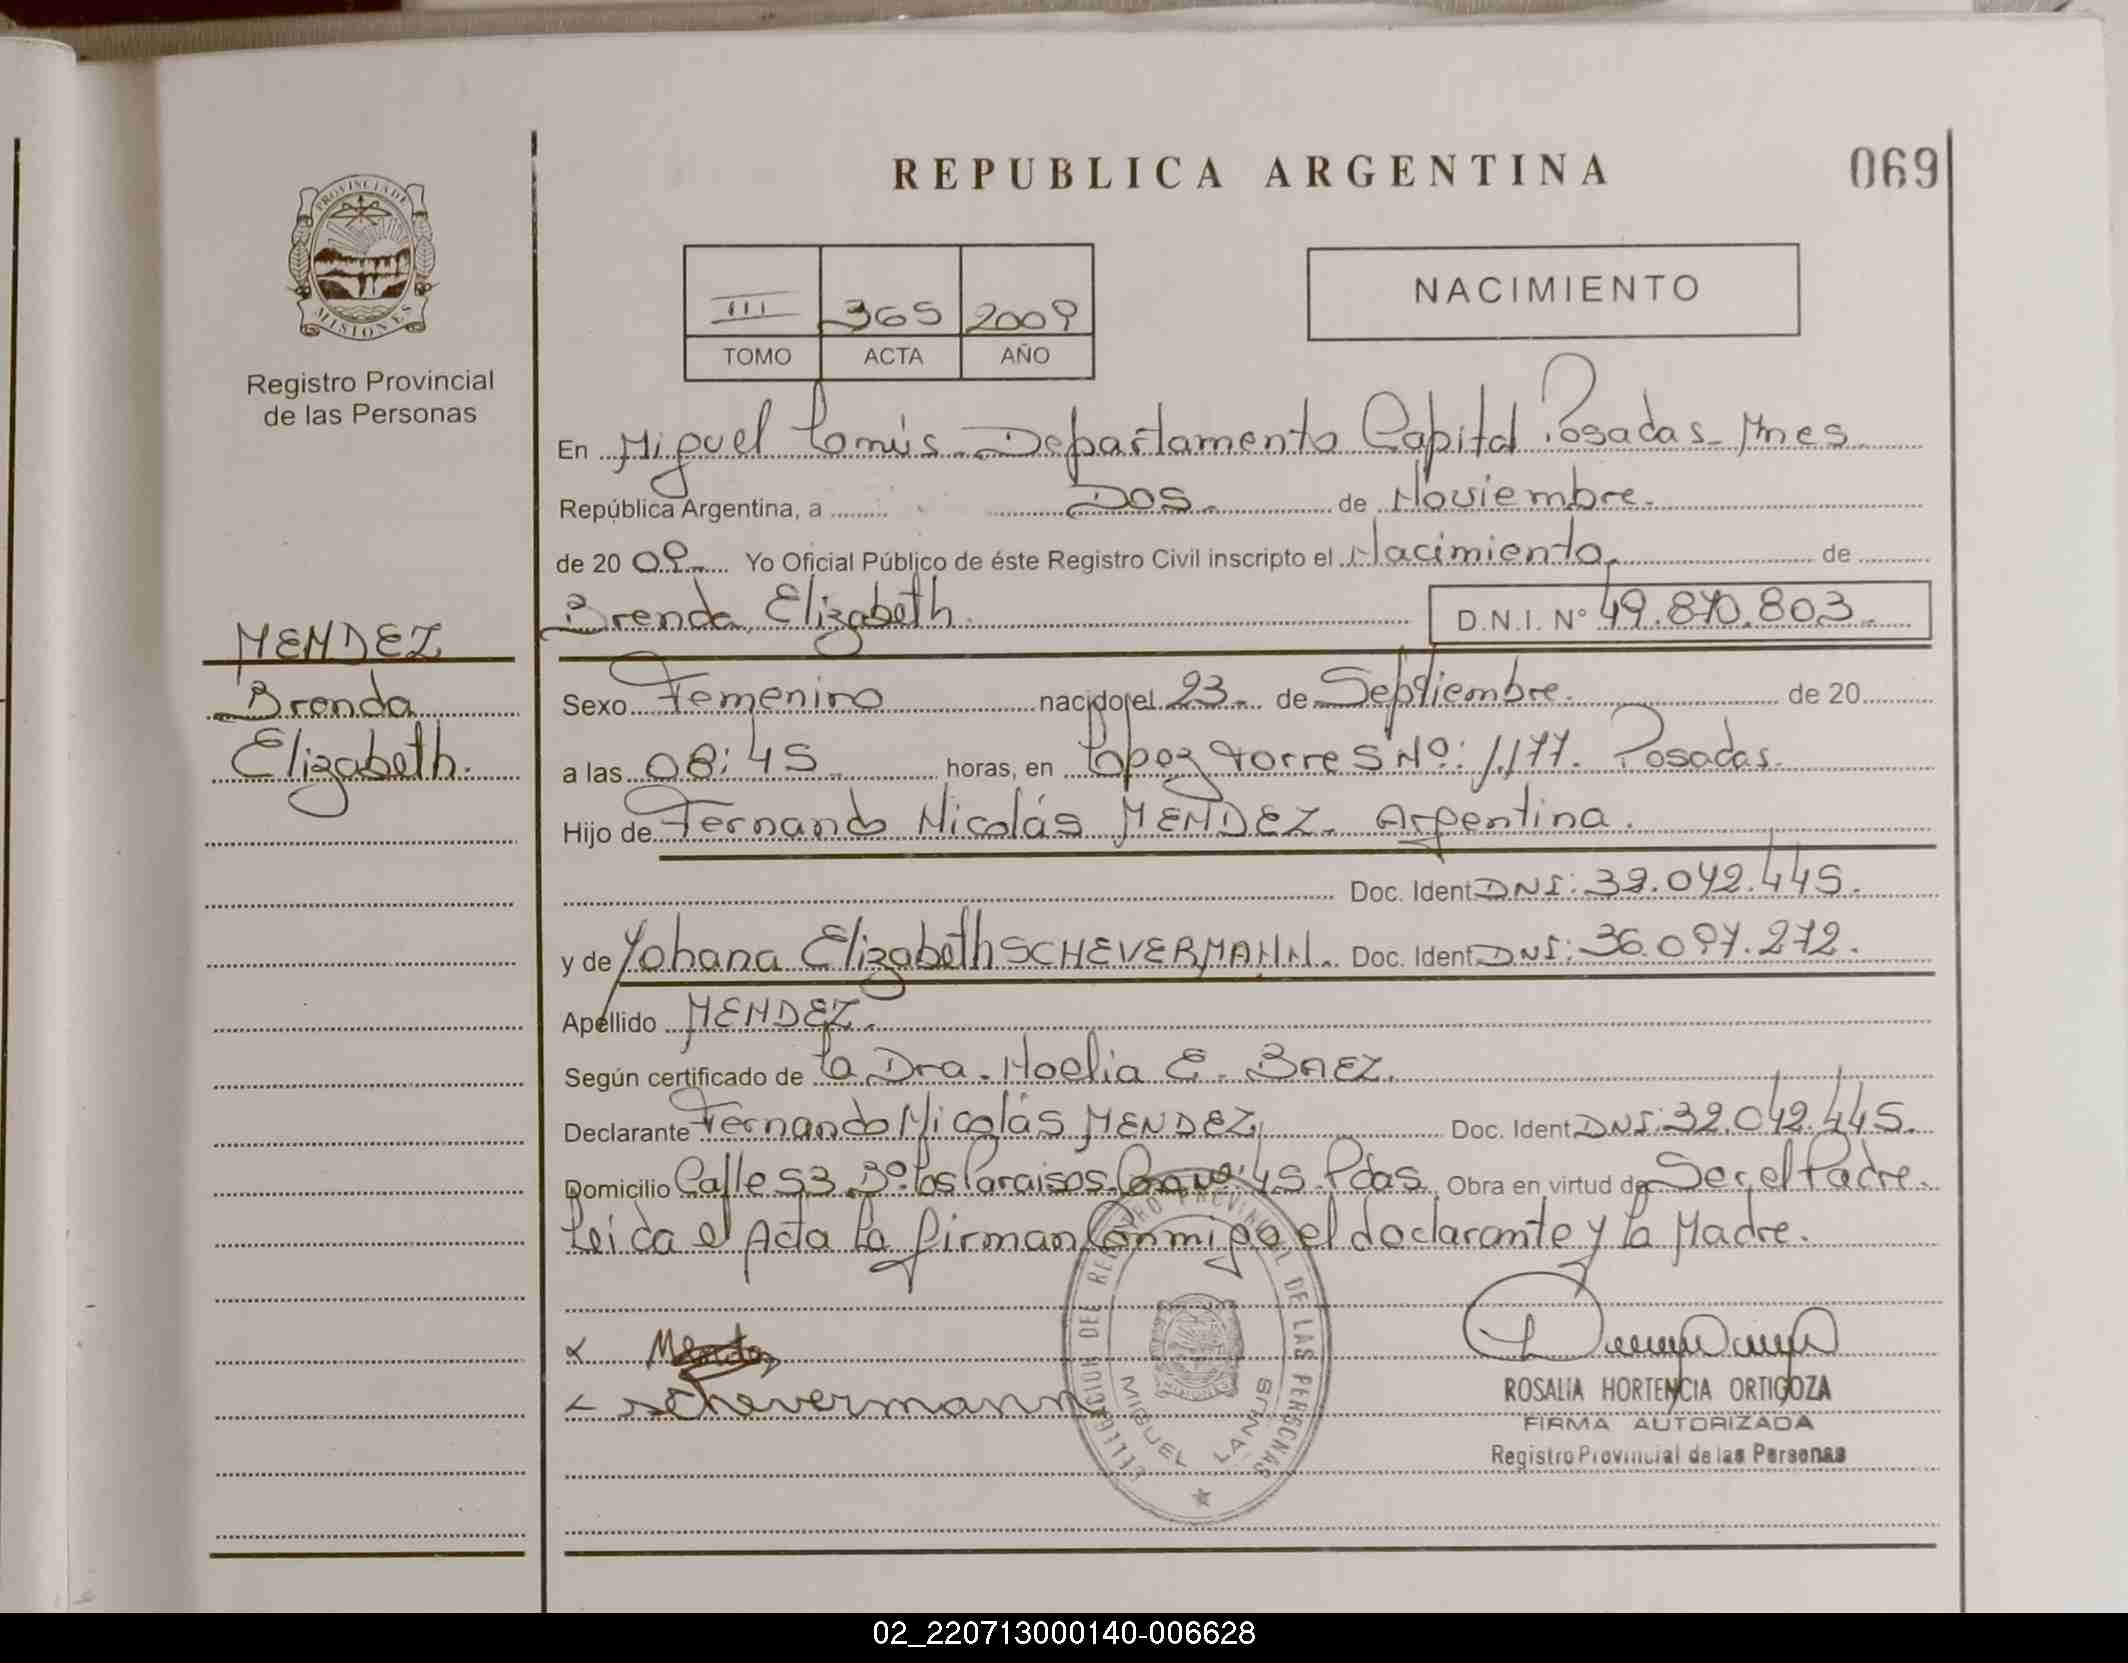 REPUBLICA ARGENTINA
069
PROVINCIA DE
MISIONES
Registro Provincial
de las Personas
III 365 2009
TOMO ACTA AÑO
NACIMIENTO
En Miguel Lanús - Departamento Capital Posadas - Mnes.
República Argentina, a Dos de Noviembre.
de 20 09 Yo Oficial Público de éste Registro Civil inscripto el Nacimiento de
Brenda Elizabeth. D.N.I. Nº 49.870.803
MENDEZ
Brenda
Elizabeth.
Sexo Femenino nacido el 23 de Septiembre. de 20
a las 08:45 horas, en Lopez Torres Nº: 1.177. Posadas.
Hijo de Fernando Nicolás MENDEZ. Argentina.
Doc. Ident DNI: 32.042.445.
y de Yohana Elizabeth SCHEVERMANN. Doc. Ident DNI: 36.097.272.
Apellido MENDEZ.
Según certificado de la Dra. Noelia E. BAEZ.
Declarante Fernando Nicolás MENDEZ Doc. Ident DNI: 32.042.445.
Domicilio Calle 53 Bº. Los Paraisos Casa Nº 45. Pdas. Obra en virtud de Ser el Padre.
Leida el Acta la firman Conmigo el declarante y la Madre.
x Mendez
x schevermann
DELEGACION DEL REGISTRO PROVINCIAL DE LAS PERSONAS
MIGUEL LANUS
ROSALIA HORTENCIA ORTIGOZA
FIRMA AUTORIZADA
Registro Provincial de las Personas
02_220713000140-006628